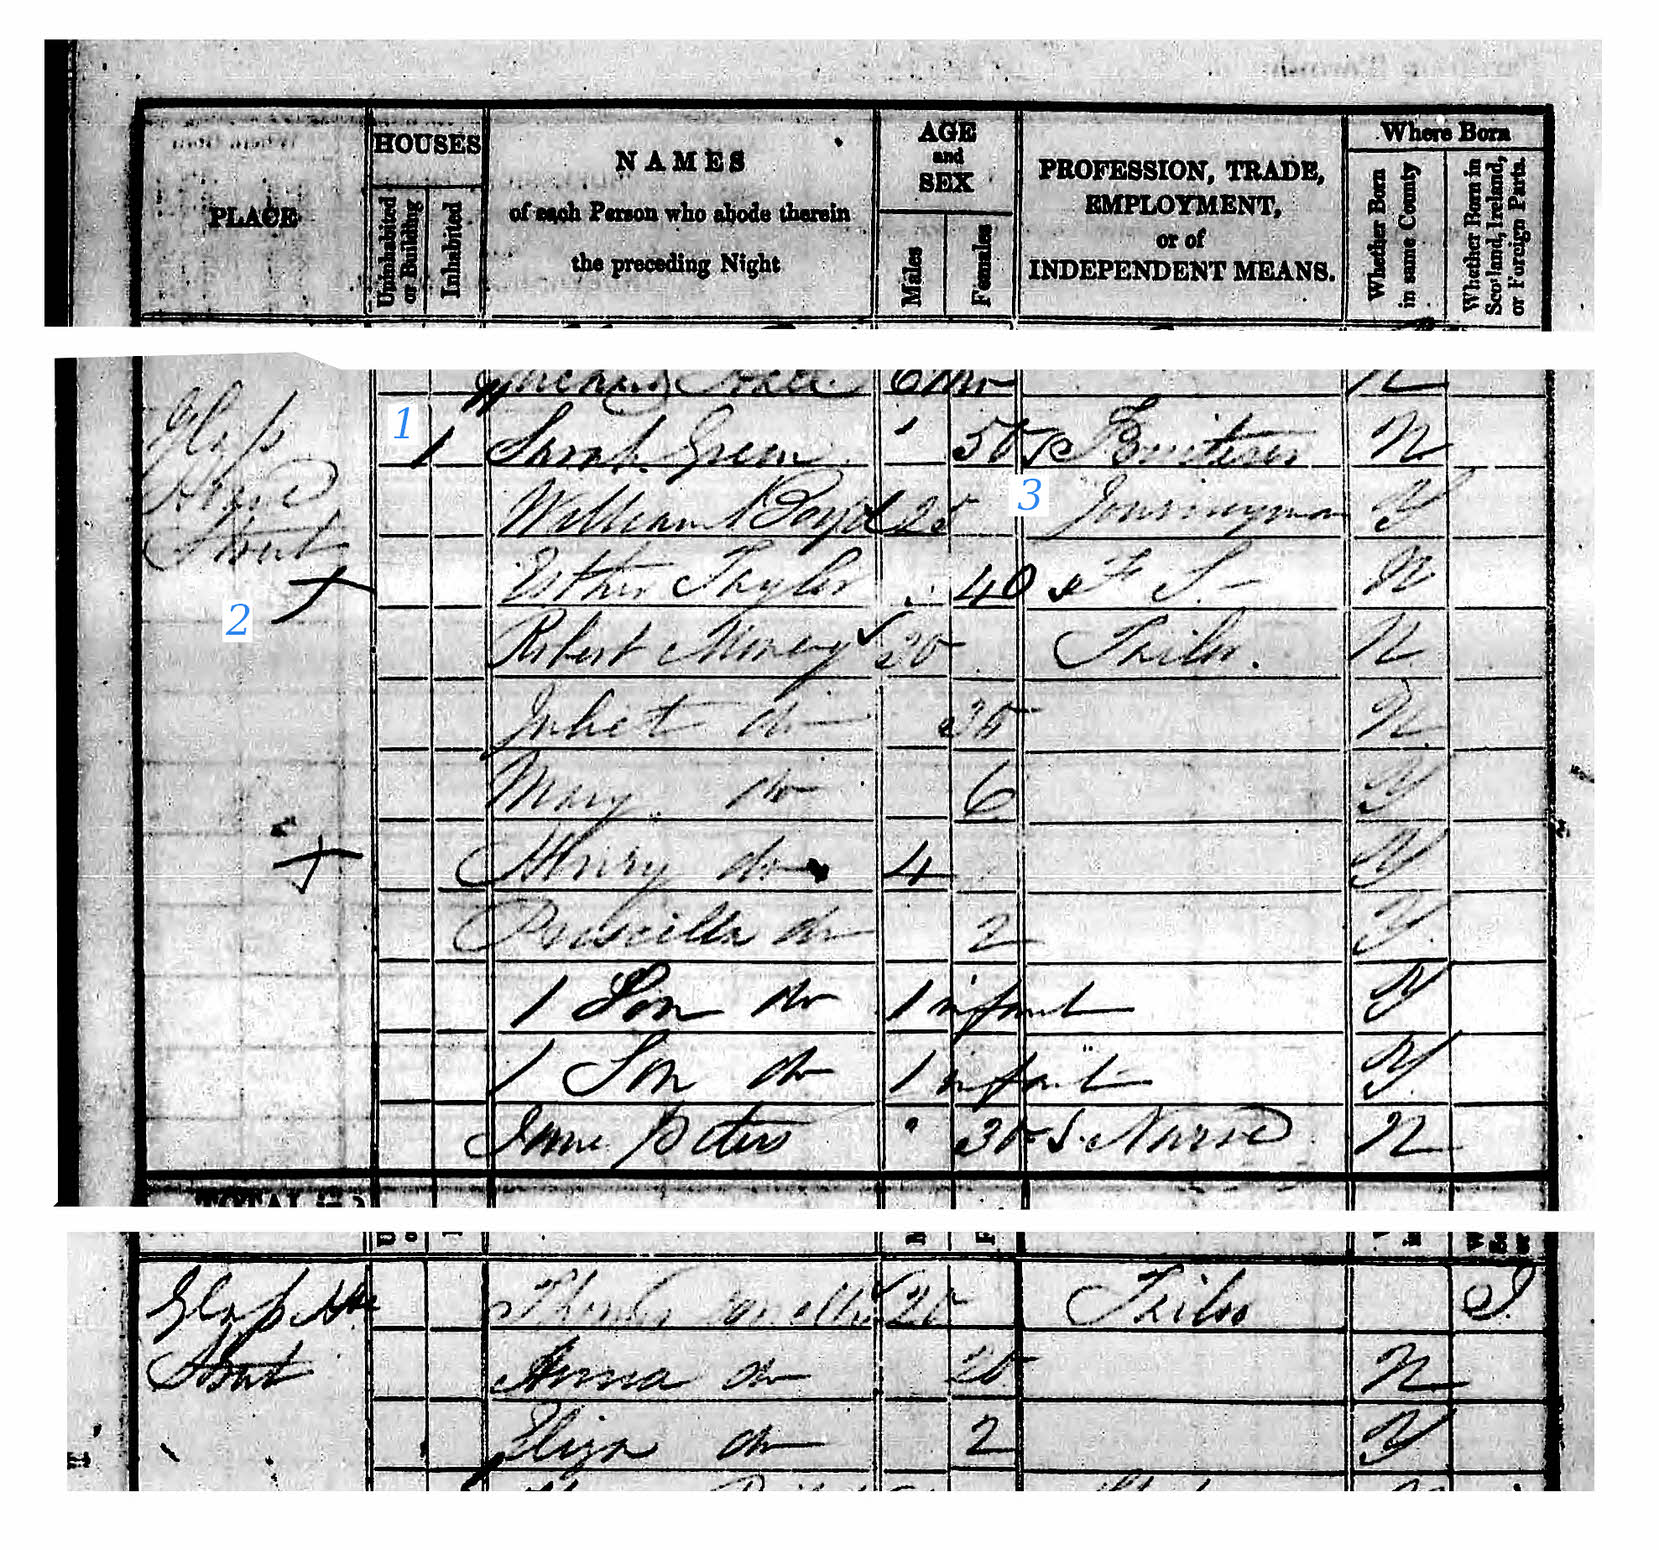 PLACE
HOUSES
Uninhabited or Building
Inhabited
NAMES
of each Person who abode therein
the preceding Night
AGE
and
SEX
Males
Females
PROFESSION, TRADE,
EMPLOYMENT,
or of
INDEPENDENT MEANS.
Where Born
Whether Born in same County
Whether Born in Scotland, Ireland, or Foreign Parts.
6 Mo N
Glass House Street
1
1 Sarah Green 50 N
2
3
William Boyd 25 Journeyman Y
Esther Taylor 40 F. S. N
Robert Money 30 Tailor. N
Juliet do 30 N
Mary do 6 Y
Henry do 4 Y
Priscilla do 2 Y
1 Son do 1 infant Y
1 Son do 1 infant Y
Jane Peters 30 S. Nurse N
TOTAL in
Glass Hse Street
Thomas 20 Tailor I
Anna do 20 N
Eliza do 2 Y